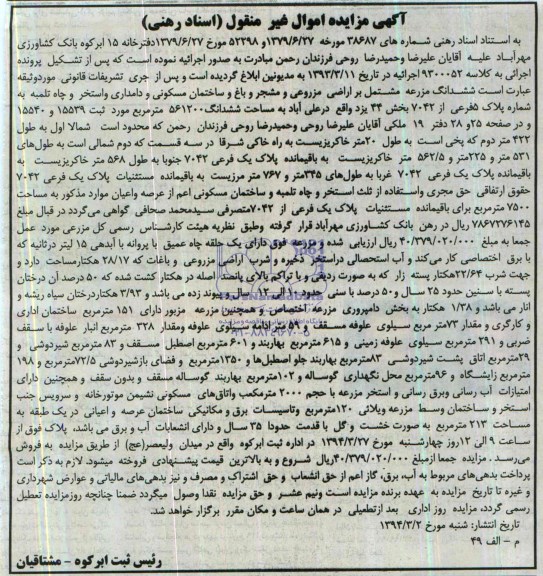 آگهی مزایده اموال غیر منقول (اسناد رهنی)
به استناد اسناد رهنی شماره های ۳۸۶۸۷ مورخه ۱۳۷۹/۶/۲۷ و ۵۲۳۹۸ مورخ ۱۳۷۹/۶/۲۷ دفترخانه ۱۵ ابرکوه بانک کشاورزی
مهرآباد علیه آقایان علیرضا وحمیدرضا روحی فرزندان رحمن مبادرت به صدور اجرائیه نموده است که پس از تشکیل پرونده
اجرائی به کلاسه ۹۳۰۰۰۵۲ اجرائیه در تاریخ ۱۳۹۳/۳/۱۱ به مدیونین ابلاغ گردیده است و پس از جری تشریفات قانونی موردوثیقه
عبارت است ششدانگ مزرعه مشتمل بر اراضی مزروعی و مشجر و باغ و ساختمان مسکونی و دامداری واستخر و چاه تلمبه به
شماره پلاک ۵فرعی از ۷۰۴۲ بخش ۴۴ یزد واقع درعلی آباد به مساحت ششدانگ ۵۶۱۲۰۰ مترمربع مورد ثبت ۱۵۵۳۹ و ۱۵۵۴۰
و در صفحه ۲۵و ۲۸ دفتر ۱۹ ملکی آقایان علیرضا روحی وحمیدرضا روحی فرزندان رحمن که محدود است شمالا اول به طول
۴۲۲ متر دوم که پخی است به طول ۲۰متر خاکریزیست به راه خاکی شرقا در سه قسمت که دوم شمالی است به طول‌های
۵۳۱ متر و ۲۲۵متر و ۵۶۲/۵ متر خاکریزیست به باقیمانده پلاک یک فرعی ۷۰۴۲ جنوبا به طول ۵۶۸ متر خاکریزیست به
باقیمانده پلاک یک فرعی ۷۰۴۲ غربا به طول‌های ۳۴۵متر و ۷۶۷ متر مرزیست به باقیمانده مستثنیات پلاک یک فرعی ۷۰۴۲
حقوق ارتفاقی حق مجری واستفاده از ثلث استخر و چاه تلمبه و ساختمان مسکونی اعم از عرصه واعیان موارد مذکور به مساحت
۷۵۰۰ مترمربع برای باقیمانده مستثنیات پلاک یک فرعی از ۷۰۴۲متصرفی سیدمحمد صحافی گواهی می‌گردد در قبال مبلغ
۲۸۶۷۳۷۶۱۴۵ ریال در رهن بانک کشاورزی مهرآباد قرار گرفته وطبق نظریه هیئت کارشناس رسمی کل مزروعی مورد عمل
جمعا به مبلغ ۴۰/۳۷۹/۰۲۰/۰۰۰ ریال ارزیابی شده و مزرعه فوق دارای یک حلقه چاه عمیق با پروانه با آبدهی ۱۵ لیتر درثانیه که
با برق اختصاصی کار می‌کند و آب استحصالی دراستخر ذخیره و شرب اراضی مزروعی و باغات که ۲۸/۱۷ هکتارمساحت دارد و
جهت شرب ۲۲/۶۴هکتار پسته زار که به صورت ردیفی و با تراکم بالای پانصد اصله در هکتار کشت شده که ۵۰ درصد آن درختان
پسته با سنین حدود ۲۵ سال و ۵۰ درصد با سنی حدود ۱۰ الی ۱۳ سال پیوند زده می باشد و ۳/۹۳ هکتاردرختان سیاه ریشه و
انار می باشد و ۱/۳۸ هکتار به بخش دامپروری مزرعه اختصاص و همچنین مزرعه مزبور دارای ۱۵۱ مترمربع ساختمان اداری
و کارگری و مقدار ۷۳متر مربع سیلوی علوفه مسقف و ۵۹ متر ادامه سیلوی علوفه ومقدار ۳۲۸ مترمربع انبار علوفه با سقف
ضربی و ۲۹۱ مترمربع سیلوی علوفه زمینی و ۶۱۵ مترمربع بهاربند و ۶۰۱ مترمربع اصطبل مسقف و ۸۳ مترمربع شیردوشی و
۲۹مترمربع اتاقک پشت شیردوشی ۸۳مترمربع بهاربند جلو اصطبل‌ها و ۱۳۵۰مترمربع و فضای بازشیردوشی ۷۲/۵مترمربع و ۱۹۸
مترمربع زایشگاه و ۹۶مترمربع محل نگهداری گوساله و ۱۰۲مترمربع بهاربند گوساله مسقف و بدون سقف و همچنین دارای
امتیازات آب رسانی وبرق رسانی و استخر مزرعه با حجم ۲۰۰۰ مترمکعب واتاق‌های مسکونی نشیمن موتورخانه و سرویس جنب
استخر و ساختمان وسط مزرعه ویلائی ۱۲۰مترمربع وتاسیسات برق و مکانیکی ساختمان عرصه و اعیانی در یک طبقه به
مساحت ۲۱۳ مترمربع به صورت خشت و گل با قدمت حدودا ۳۵ سال و دارای انشعابات آب و برق می باشد، پلاک فوق از
ساعت ۹ الی ۱۲روز چهارشنبه مورخ ۱۳۹۴/۳/۲۷ در اداره ثبت ابرکوه واقع در میدان ولیعصر(عج) از طریق مزایده به فروش
می‌رسد . مزایده جمعا ازمبلغ ۴۰/۳۷۹/۰۲۰/۰۰۰ریال شروع و به بالاترین قیمت پیشنهادی فروخته میشود. لازم به ذکر است
پرداخت بدهی‌های مربوط به آب، برق، گاز اعم از حق انشعاب و حق اشتراک و مصرف و نیز بدهی‌های مالیاتی و عوارض شهرداری
و غیره تا تاریخ مزایده به عهده برنده مزایده است ونیم عشر و حق مزایده نقدا وصول میگردد ضمنا چنانچه روزمزایده تعطیل
رسمی گردد، مزایده روز اداری بعد ازتعطیلی در همان ساعت و مکان مقرر برگزار خواهد شد.
تاریخ انتشار: شنبه مورخ ۱۳۹۴/۳/۲
م – الف ۴۹
رئیس ثبت ابرکوه – مشتاقیان